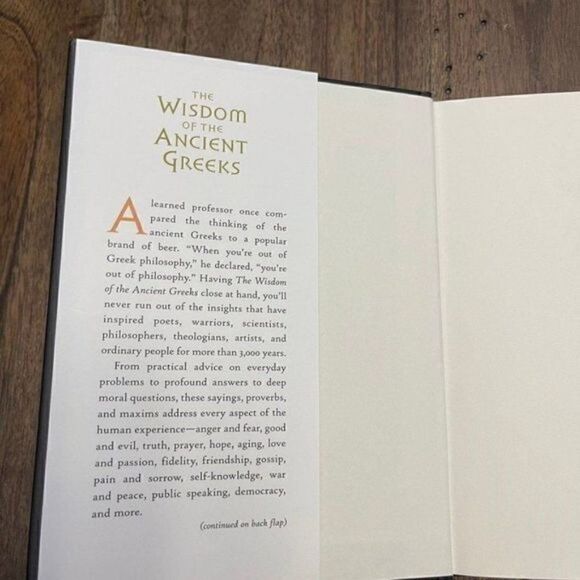 THE
WISDOM
OF THE
ANCIENT
GREEKS
A learned professor once com-
pared the thinking of the
ancient Greeks to a popular
brand of beer. "When you're out of
Greek philosophy," he declared, "you're
out of philosophy." Having The Wisdom
of the Ancient Greeks close at hand, you'll
never run out of the insights that have
inspired poets, warriors, scientists,
philosophers, theologians, artists, and
ordinary people for more than 3,000 years.
From practical advice on everyday
problems to profound answers to deep
moral questions, these sayings, proverbs,
and maxims address every aspect of the
human experience—anger and fear, good
and evil, truth, prayer, hope, aging, love
and passion, fidelity, friendship, gossip,
pain and sorrow, self-knowledge, war
and peace, public speaking, democracy,
and more.
(continued on back flap)